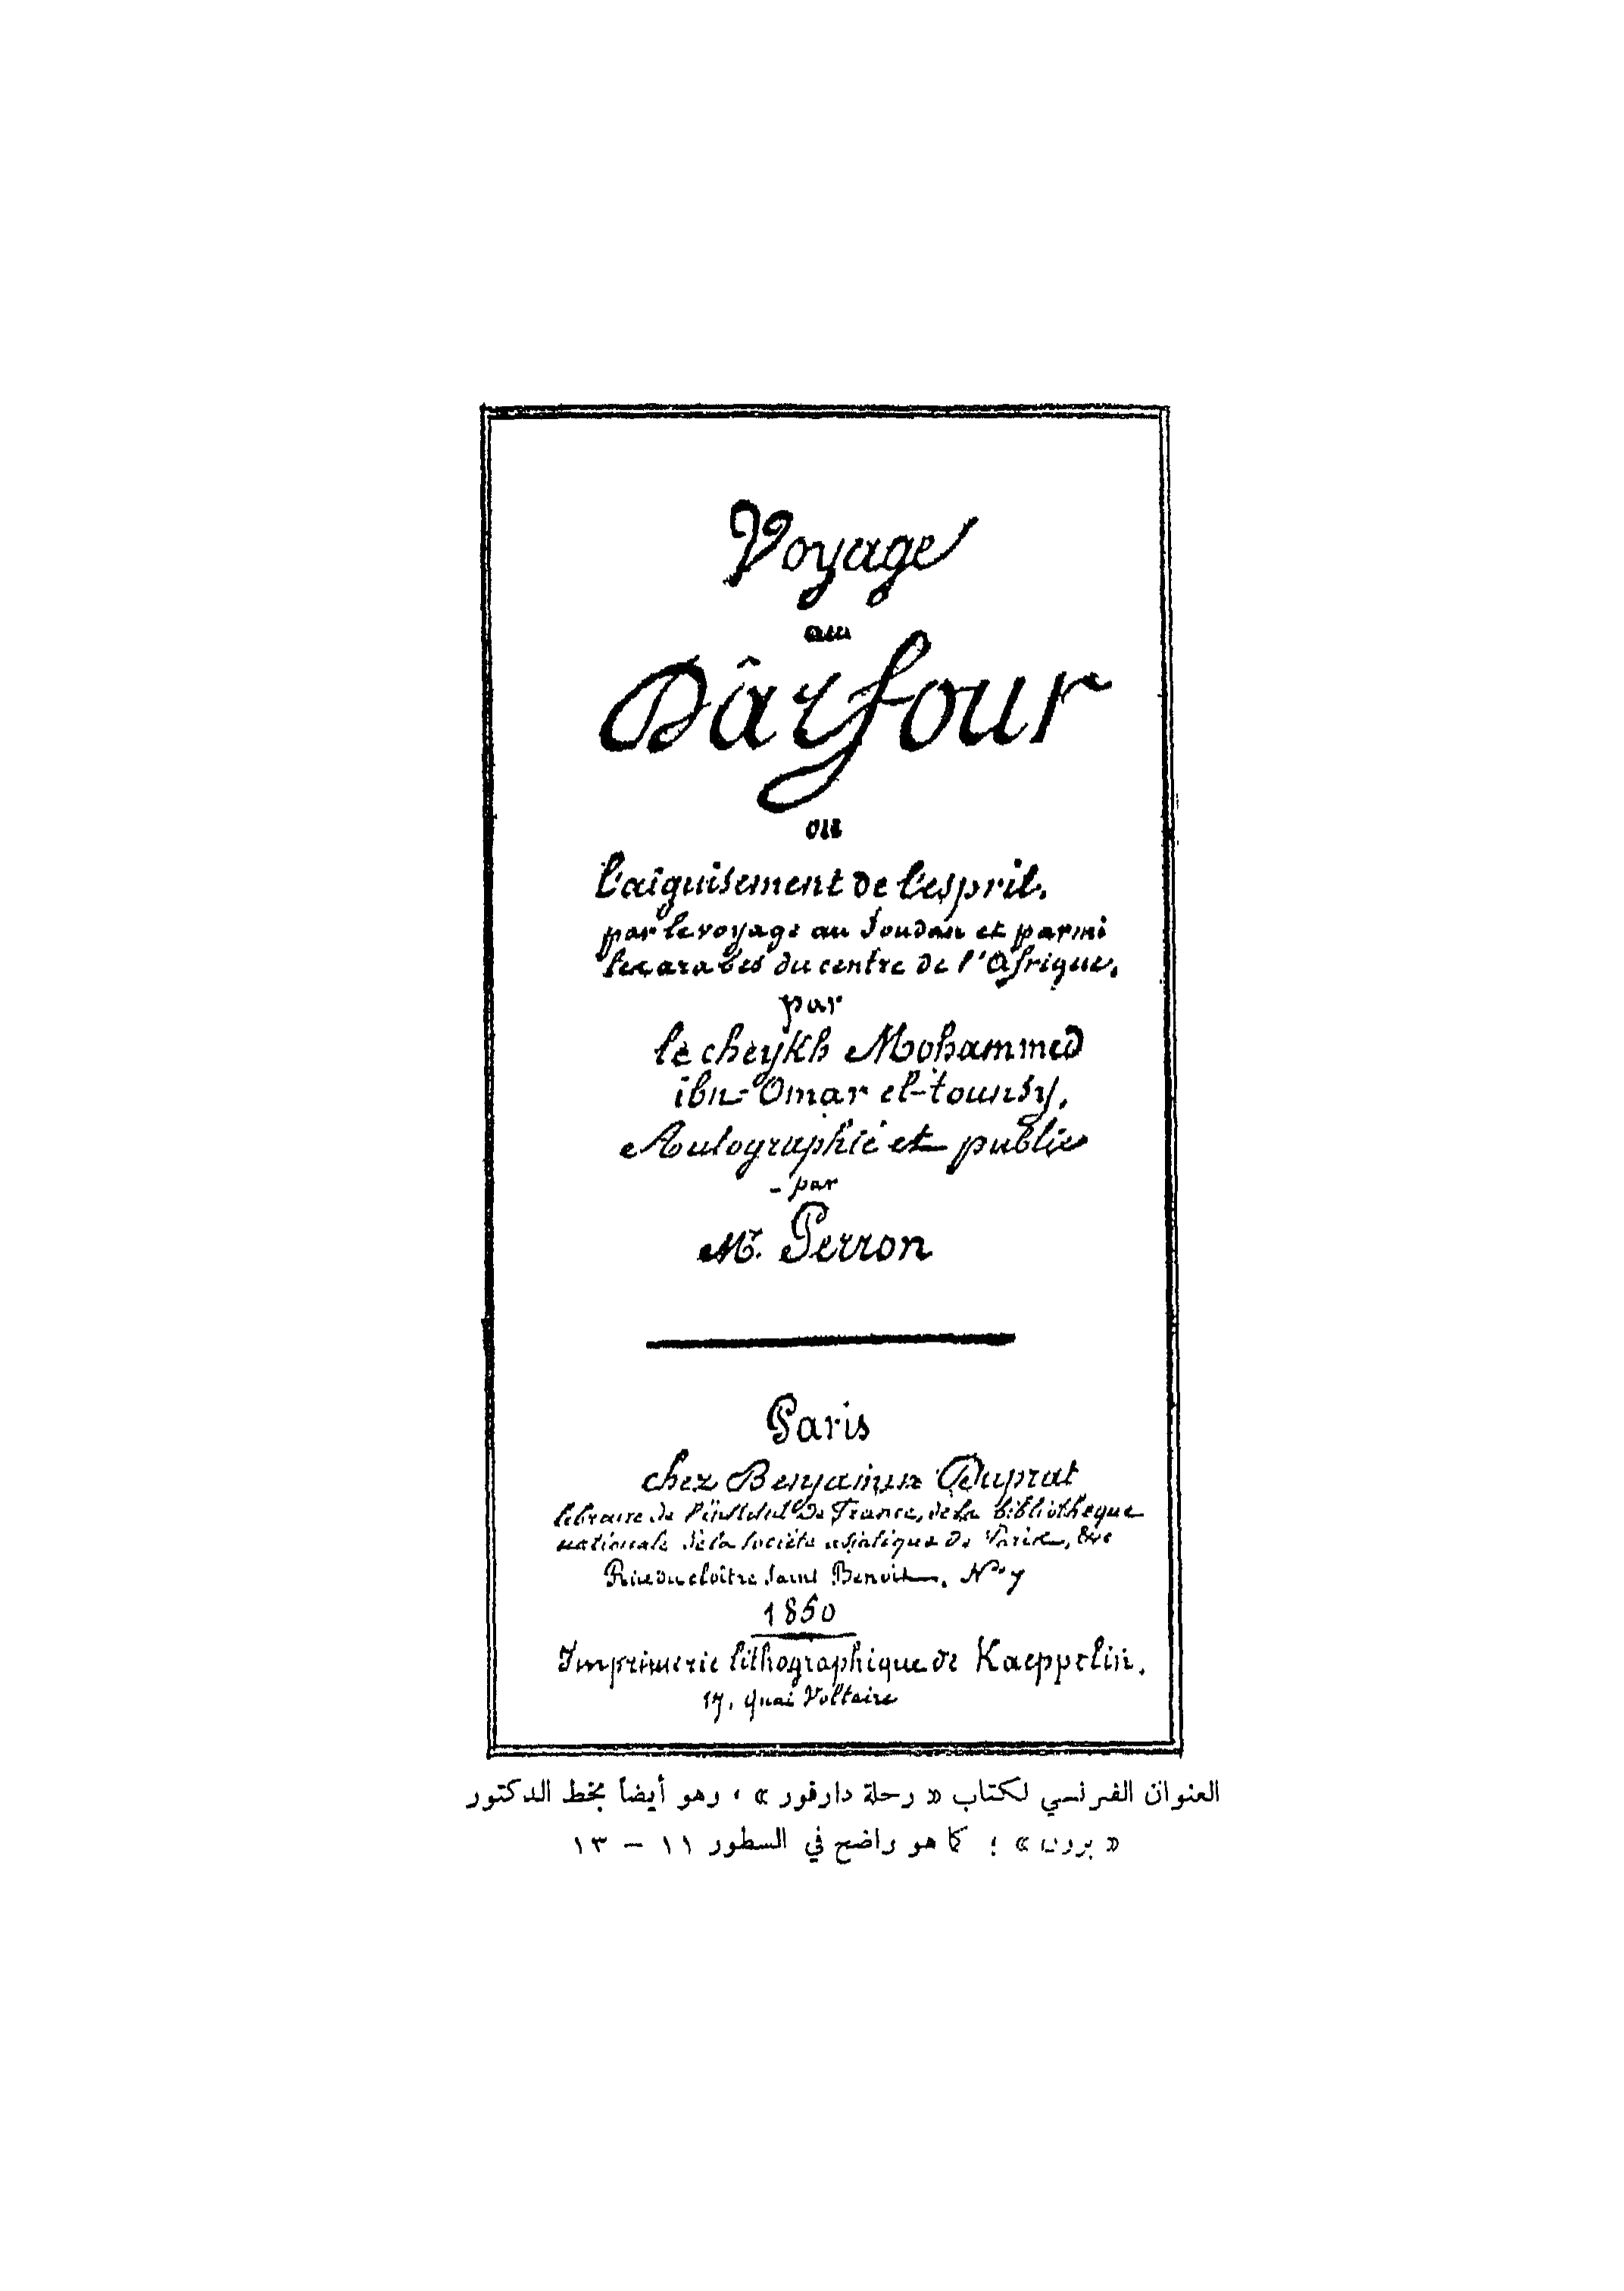 Voyage
au
Dârfour
ou
l'aiguisement de l'esprit.
par le voyage au Soudan et parmi
les arabes du centre de l'Afrique.
par
le cheykh Mohammed
ibn-Omar el-tounsy.
Autographié et publié
- par
Mr. Perron
Paris
chez Benjamin Duprat
libraire de l'institut De France, de la bibliothèque
nationale de la Société asiatique de Paris, &ce
Rue du cloître Saint Benoit. No 7
1850
Imprimerie lithographique de Kaeppelin.
17, quai Voltaire
العنوان الفرنسي لكتاب « رحلة دارفور » ، وهو أيضاً بخط الدكتور
« برون » ؛ كما هو واضح في السطور ١١ – ١٣